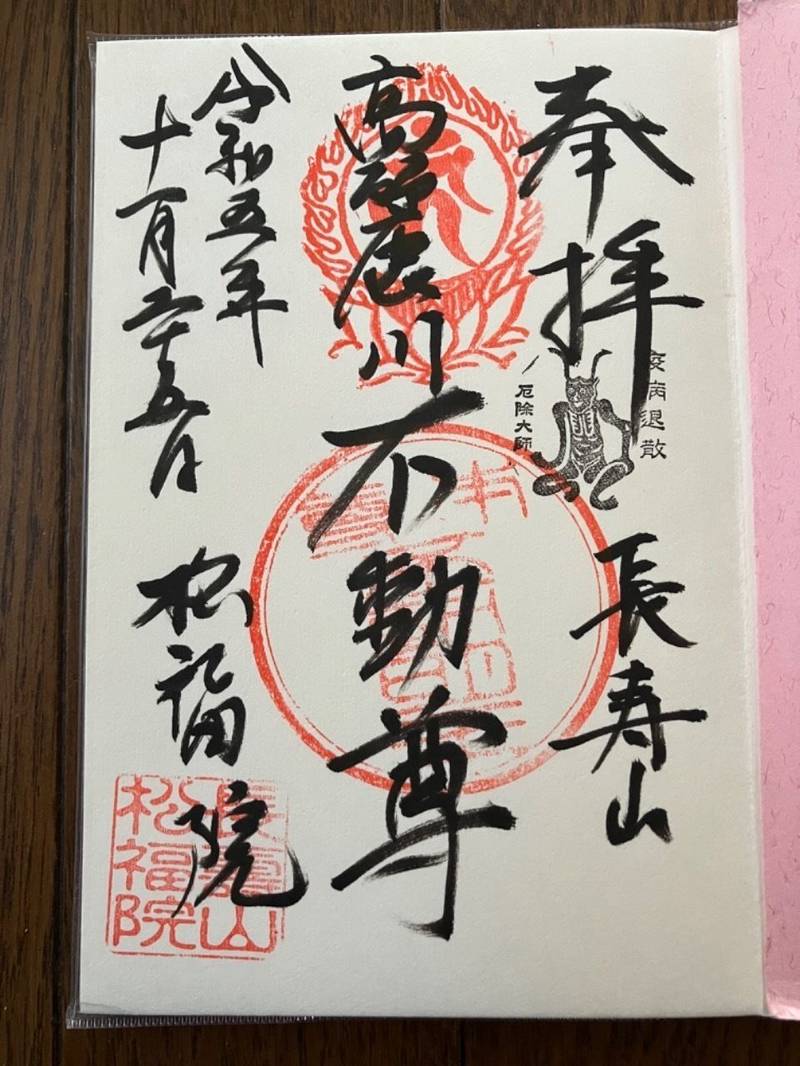 奉拝
疫病退散
厄除大師
長寿山
高
川
不動尊
令和五年
十一月二十五日
松福院
長壽山
松福院